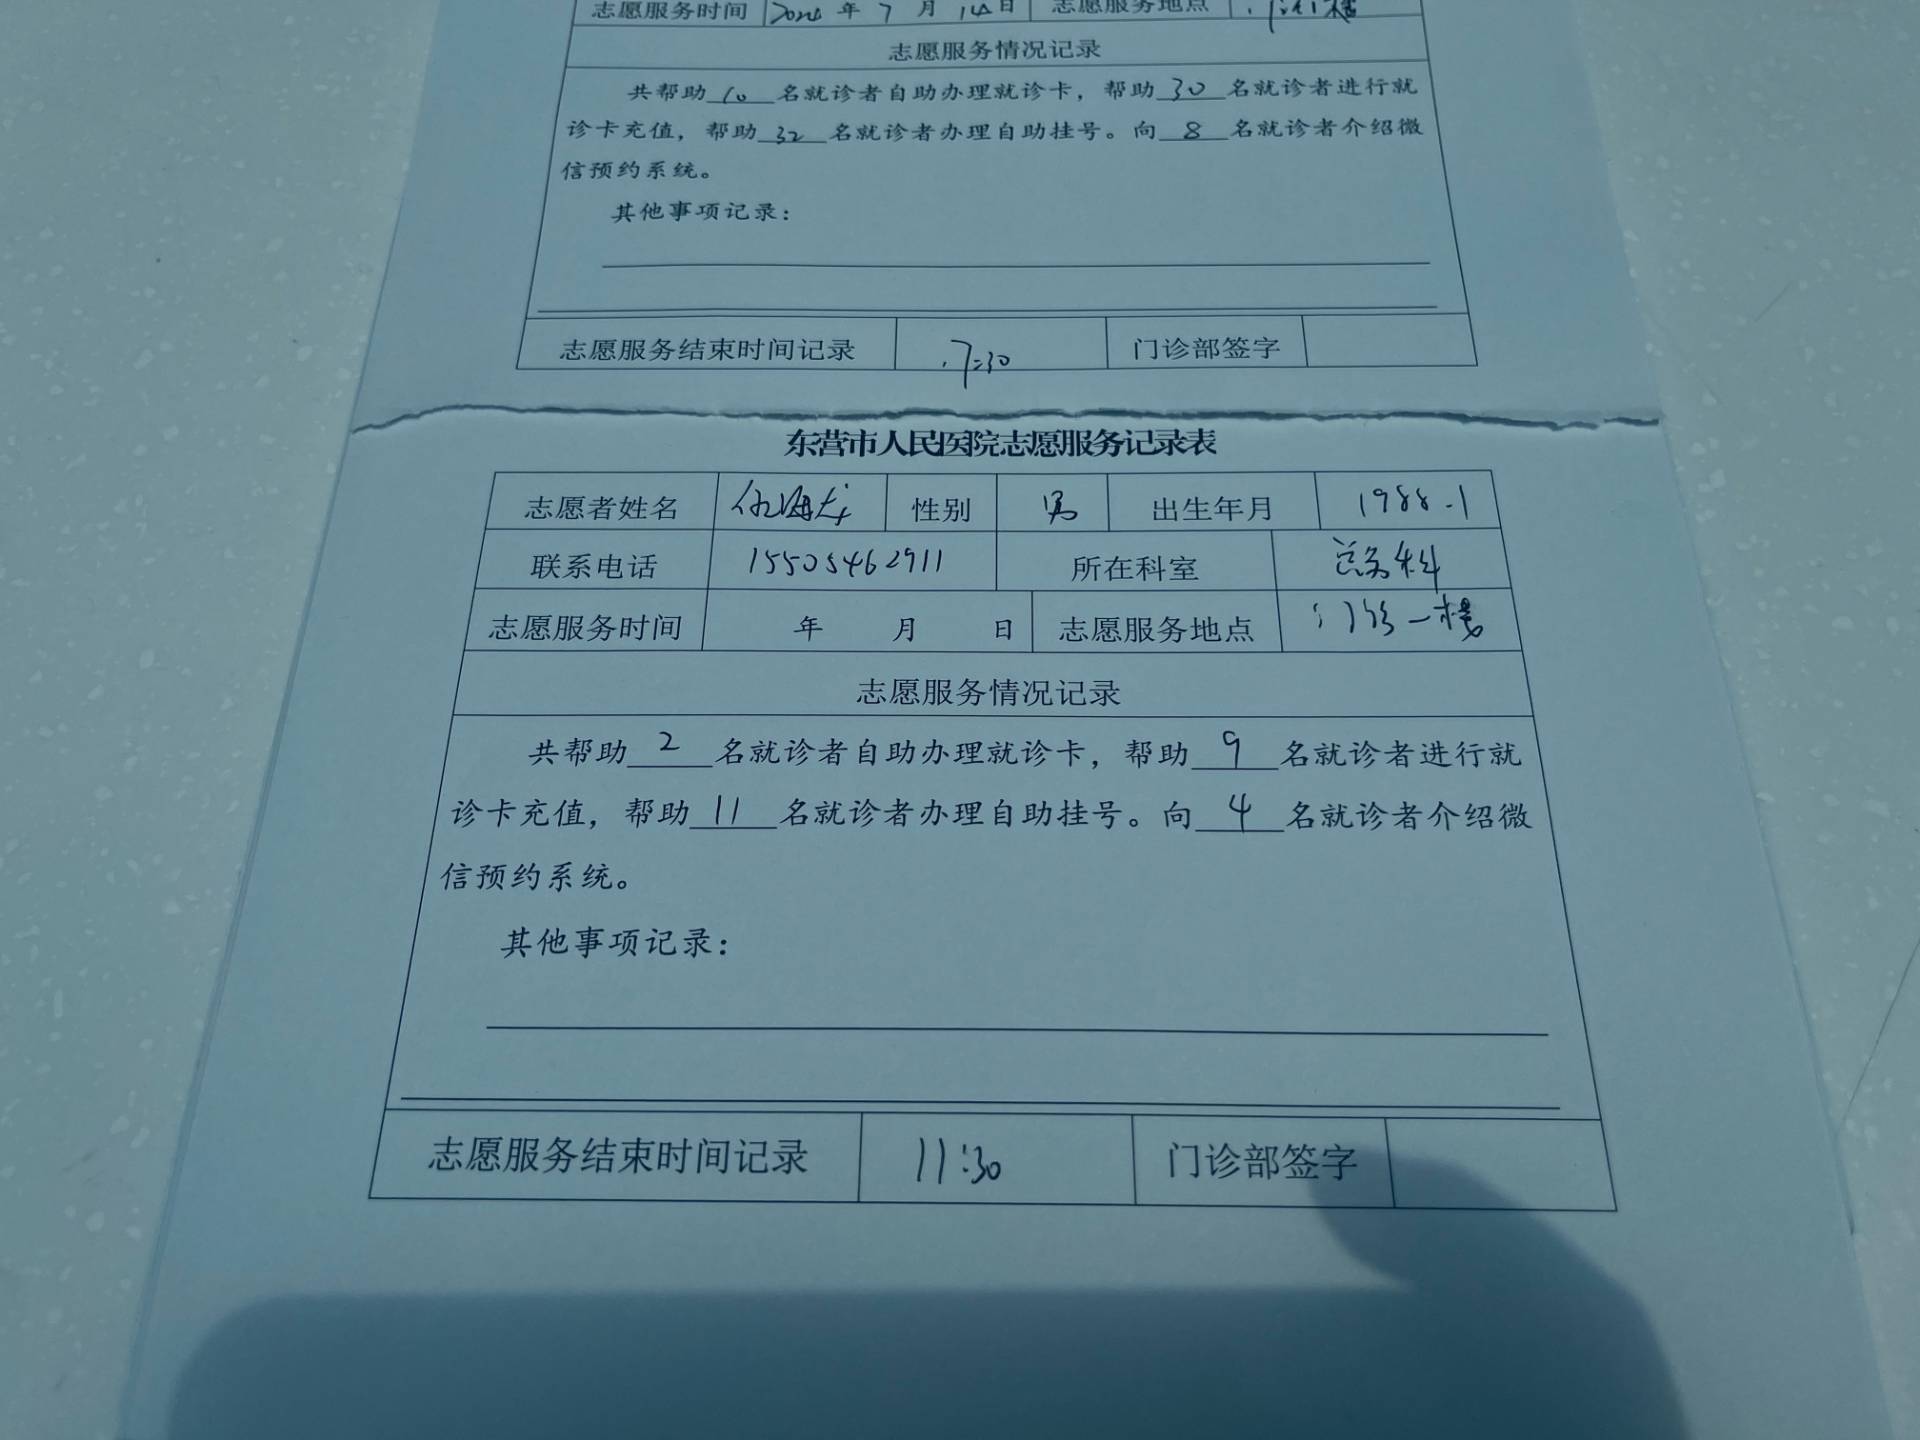 志愿服务时间 2024 年 7 月 14 日 志愿服务地点 门诊一楼
志愿服务情况记录
共帮助 10 名就诊者自助办理就诊卡，帮助 30 名就诊者进行就
诊卡充值，帮助 32 名就诊者办理自助挂号。向 8 名就诊者介绍微
信预约系统。
其他事项记录：
志愿服务结束时间记录 17:30 门诊部签字
东营市人民医院志愿服务记录表
志愿者姓名 性别 男 出生年月 1988.1
联系电话 15505462911 所在科室 总务科
志愿服务时间 年 月 日 志愿服务地点 门诊一楼
志愿服务情况记录
共帮助 2 名就诊者自助办理就诊卡，帮助 9 名就诊者进行就
诊卡充值，帮助 11 名就诊者办理自助挂号。向 4 名就诊者介绍微
信预约系统。
其他事项记录：
志愿服务结束时间记录 11:30 门诊部签字